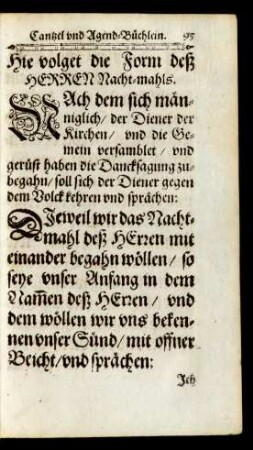 Cantzel vnd Agend-Büchlein. 95
Hie volget die Form deß
HERREN Nacht-mahls.
NAch dem sich män-
niglich/ der Diener der
Kirchen/ vnd die Ge-
mein versamblet / vnd
gerüst haben die Dancksagung zu-
begahn/ soll sich der Diener gegen
dem Volck kehren vnd sprächen:
DJeweil wir das Nacht-
mahl deß HErren mit
einander begahn wöllen/ so
seye vnser Anfang in dem
Nam̄en deß HErren / vnd
dem wöllen wir vns beken-
nen vnser Sünd/ mit offner
Beicht/ vnd sprächen:
Jch